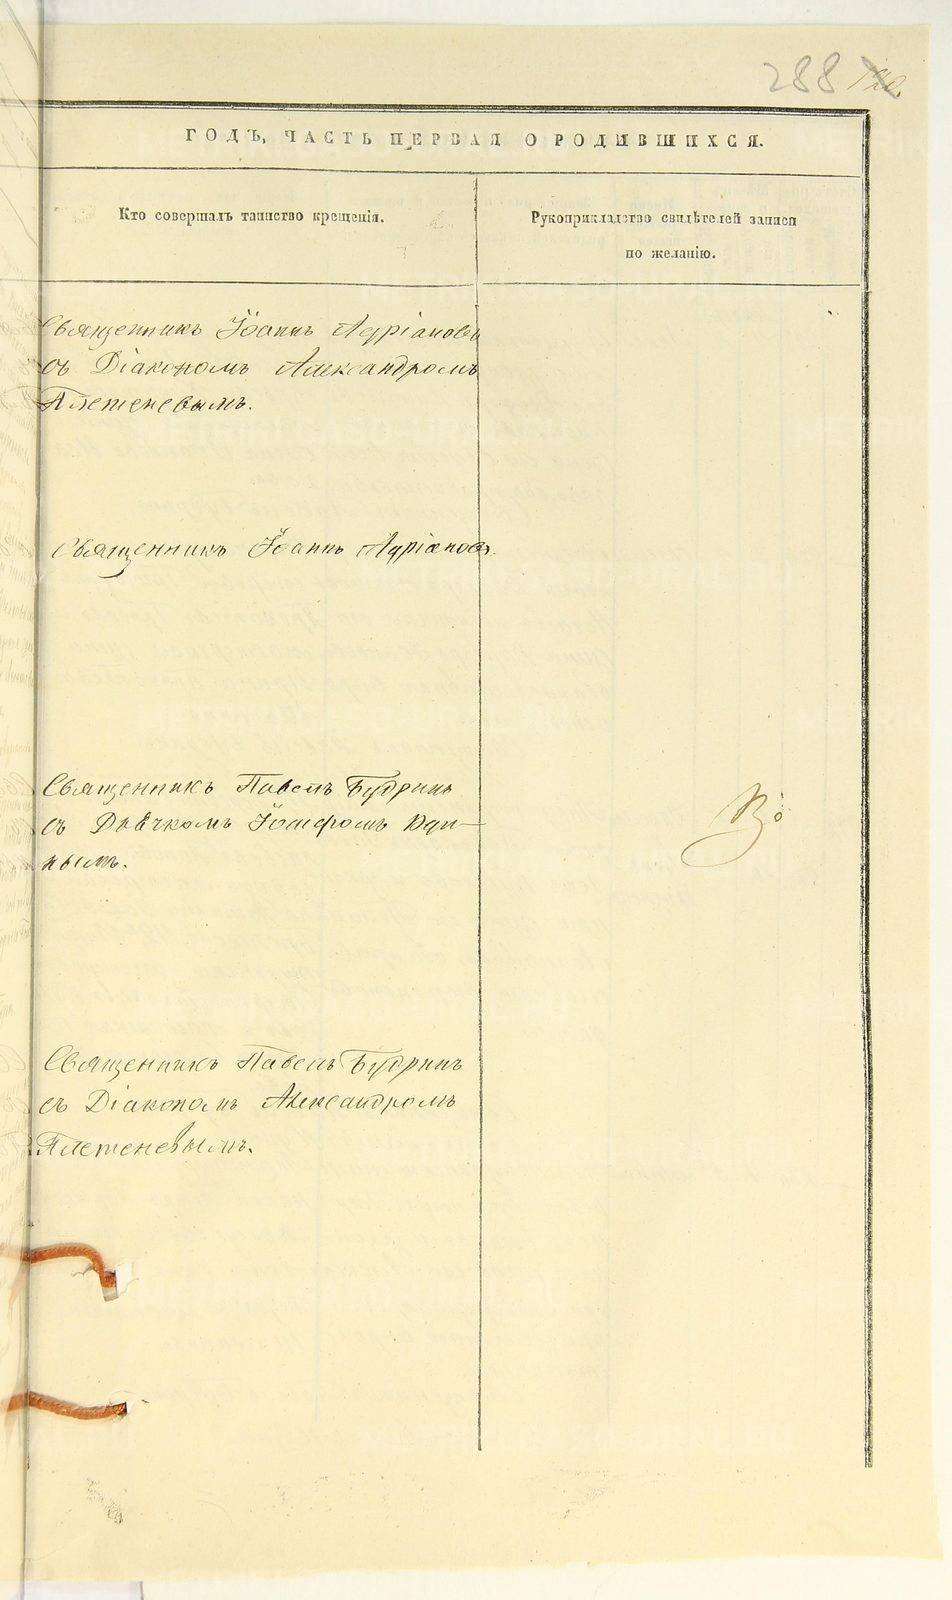 288
ГОДЪ, ЧАСТЬ ПЕРВАЯ О РОДИВШИХСЯ.
Кто совершалъ таинство крещенія.
Рукоприкладство свидѣтелей записи
по желанію.
Священникъ Іоаннъ Адріановъ
съ Діакономъ Александромъ
Плетеневымъ.
Священникъ Іоаннъ Адріановъ.
Священникъ Павелъ Будринъ
съ Дьячкомъ
нымъ.
Священникъ Павелъ Будринъ
съ Діакономъ Александромъ
Плетеневымъ.
METRIKI.GASO-URAL.RU